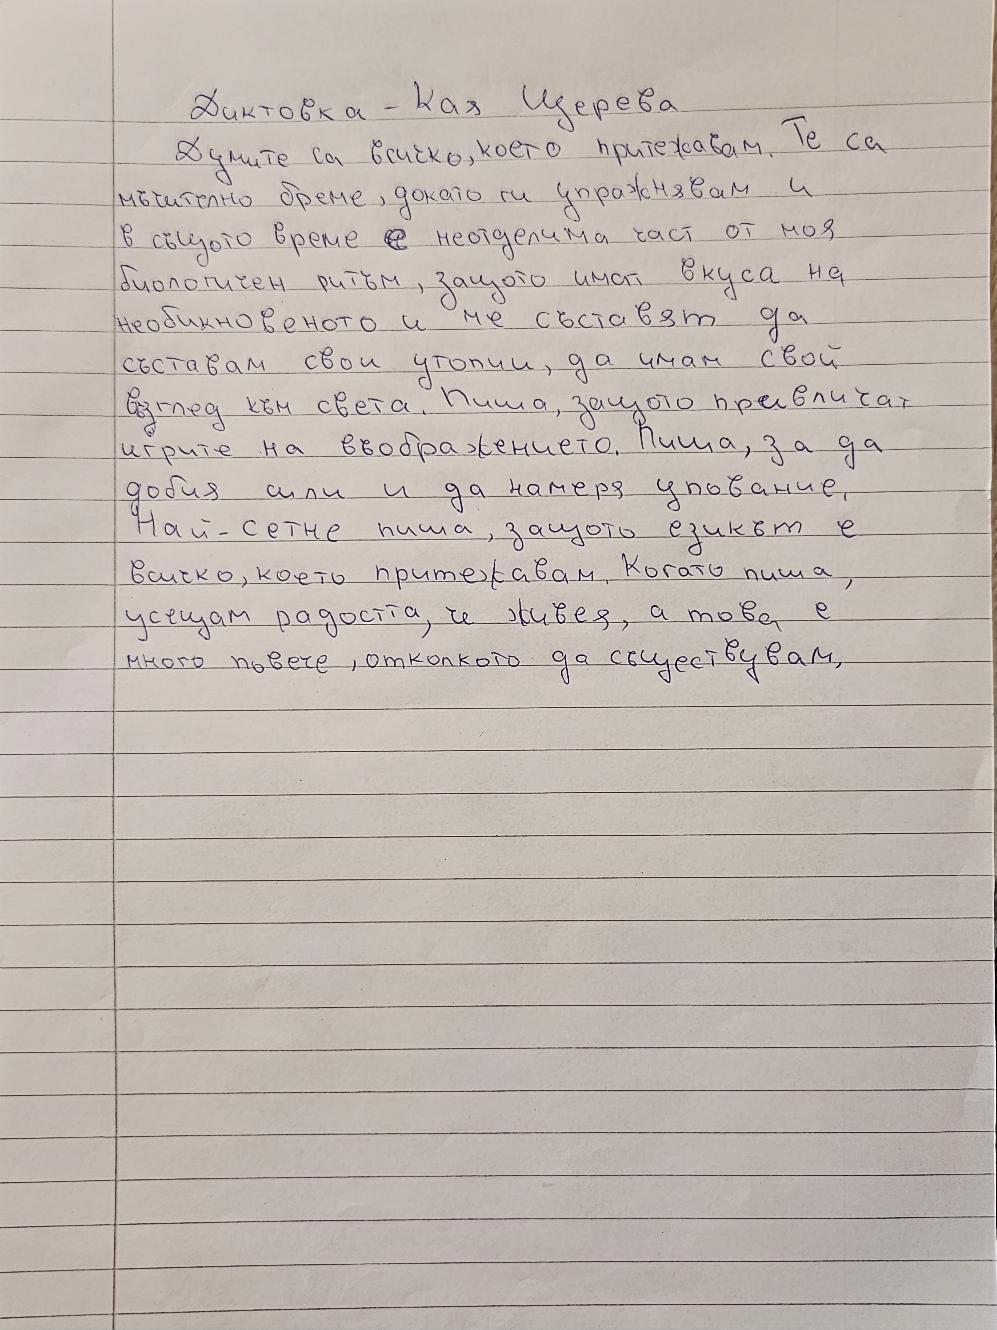 Диктовка - Кая Щерева
Думите са всичко, което притежавам. Те са
мъчително бреме, докато ги упражнявам и
в същото време е неотделима част от моя
биологичен ритъм, защото имат вкуса на
необикновеното и ме съставят да
съставам свои утопии, да имам свой
възглед към света. Пиша, защото привличат
игрите на въображението. Пиша, за да
добия сили и да намеря упование.
Най-сетне пиша, защото езикът е
всичко, което притежавам. Когато пиша,
усещам радостта, че живея, а това е
много повече, отколкото да съществувам,